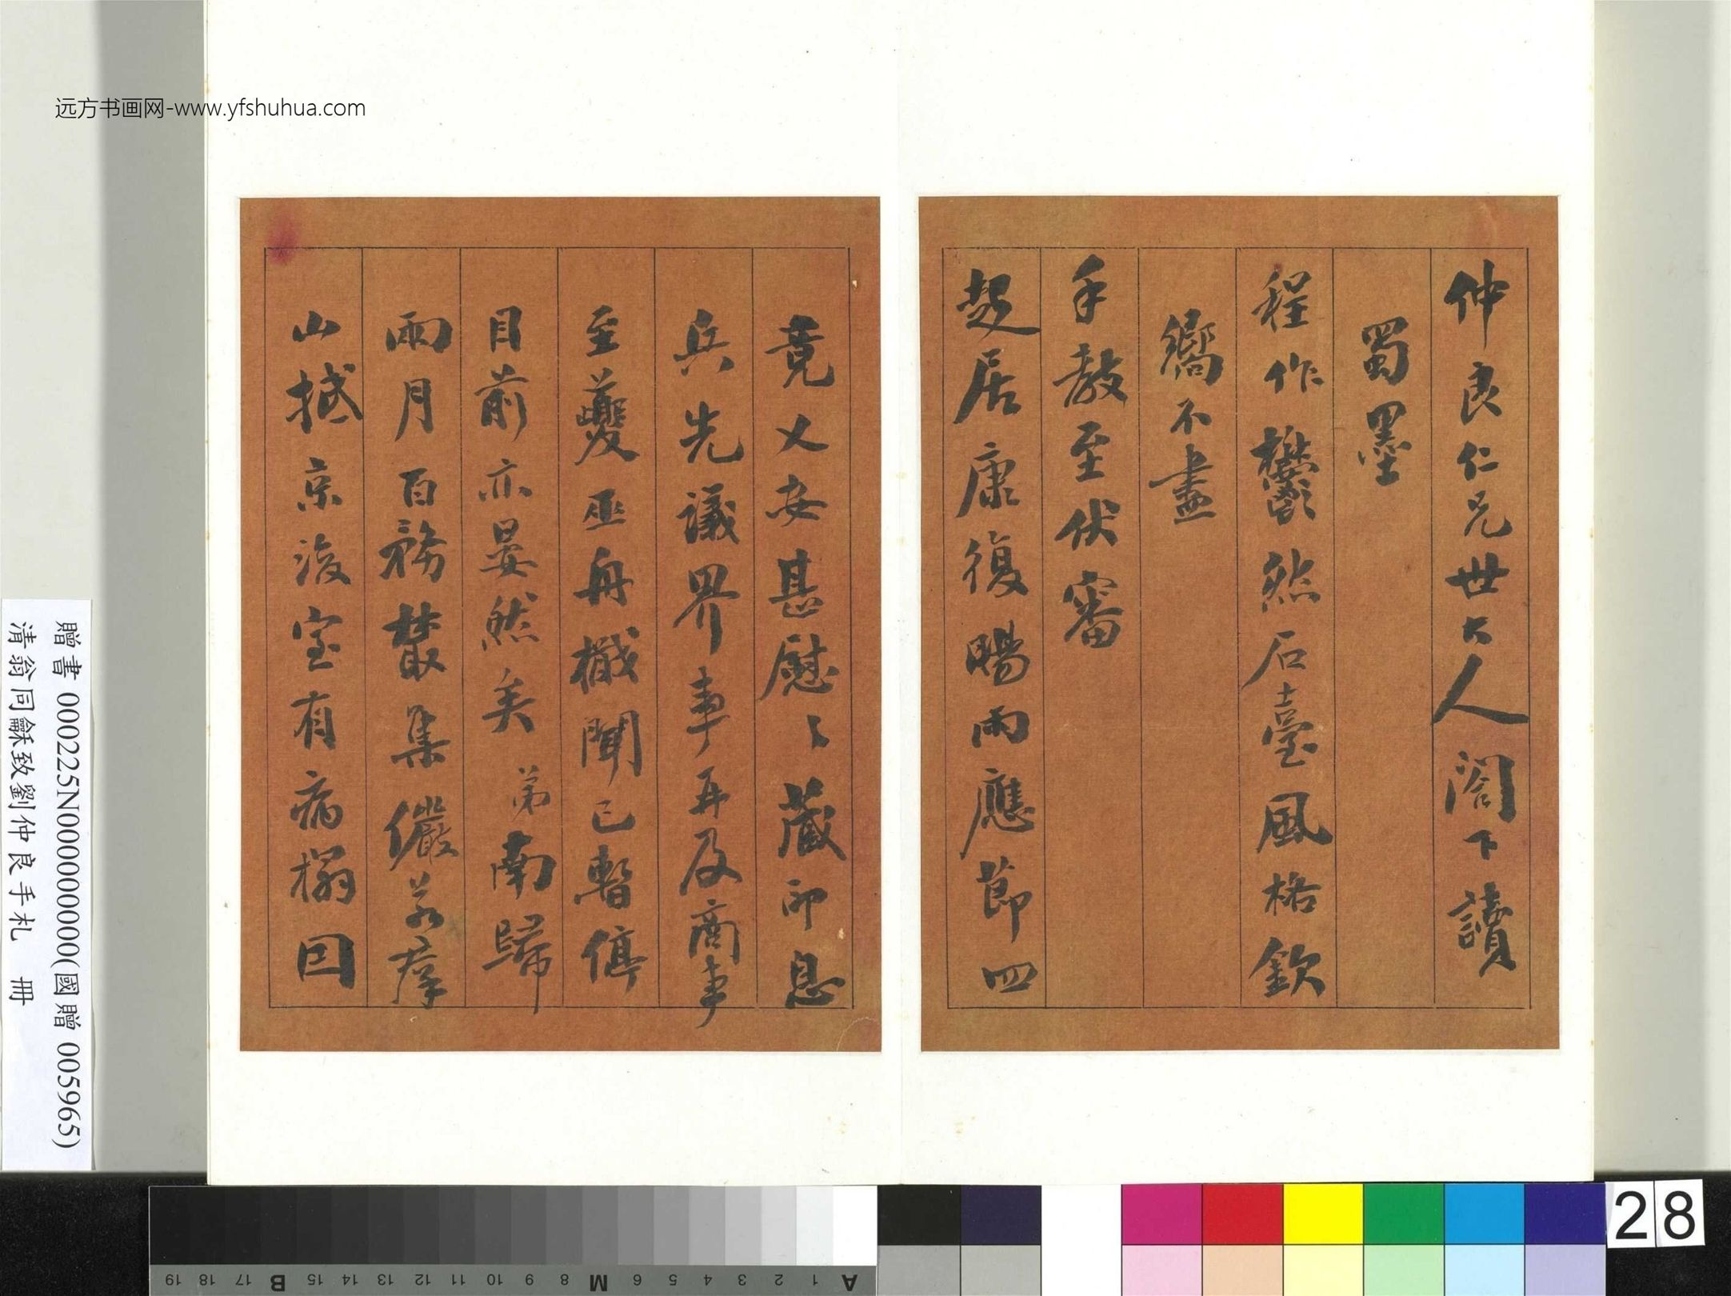 远方书画网-www.yfshuhua.com
仲良仁兄世大人閣下讀
蜀墨
程作鬱然石臺風格欽
嚮不盡
手教至伏審
起居康復暘雨應節四
竟乂安甚慰〻藏印息
兵先議界事再及商事
至夔巫舟檝聞已暫停
目前亦晏然矣弟南歸
兩月百務叢集儼若疾
山撼京後室有病榻因
贈書 000225N000000000(國贈 005965)
清翁同龢致劉仲良手札 冊
28
A 1 2 3 4 5 6 M 8 9 10 11 12 13 14 15 B 17 18 19